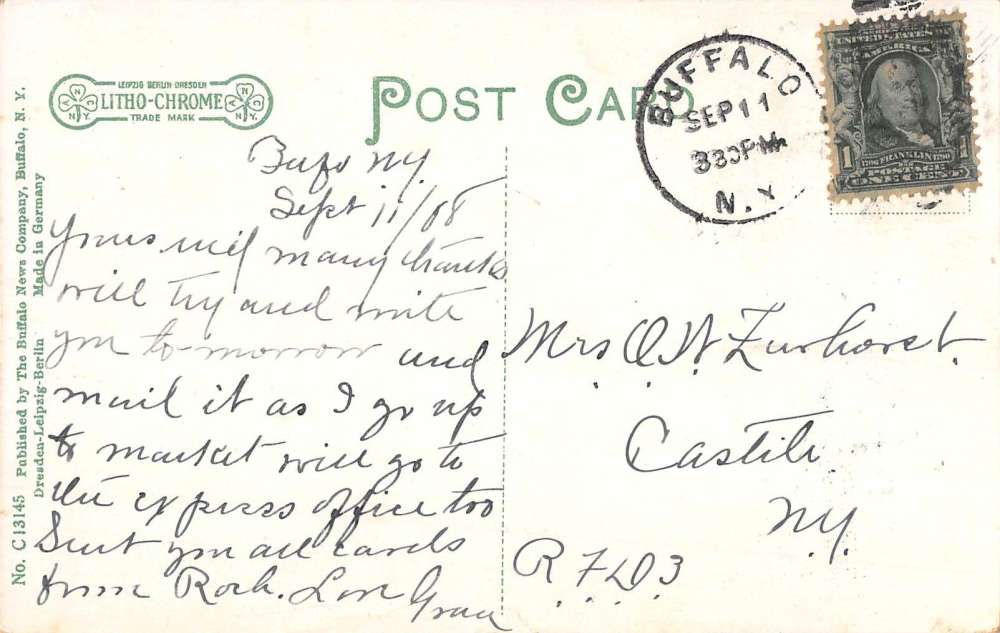 LEIPZIG BERLIN DRESDEN
LITHO-CHROME
TRADE MARK
A N C N.Y.
A N C N.Y.
POST CARD
BUFFALO
SEP 11
330PM
N.Y.
SERIES 1902
UNITED STATES OF
AMERICA
1 1706 FRANKLIN 1790 1
POSTAGE
ONE CENT
No. C 13145 Published by The Buffalo News Company, Buffalo, N. Y.
Dresden-Leipzig-Berlin Made in Germany
Bufo NY.
Sept 11/08
Yours rec'd many thanks
will try and write
you to-morrow and
mail it as I go up
to market will go to
the express office too
Sent you all cards
from Roch. Love Grace
Mrs O. W.
Castile
N.Y.
R.F.D.3